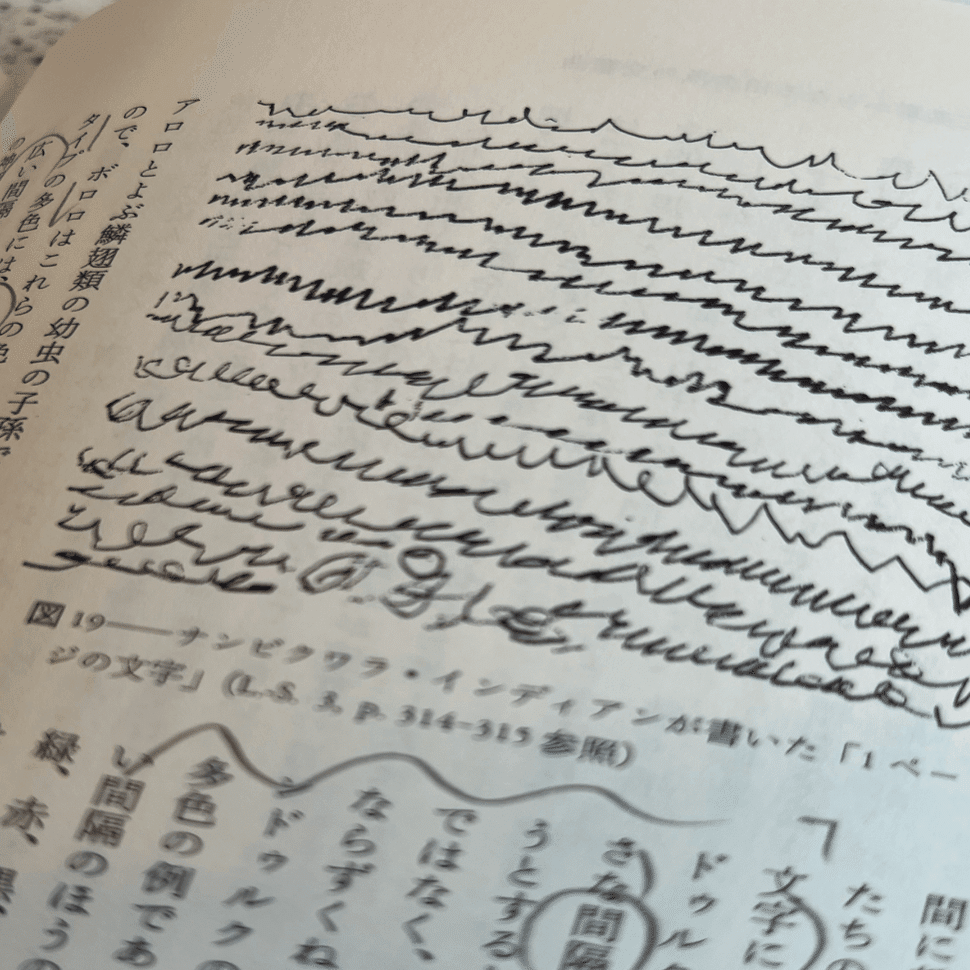 アロロとよぶ鱗翅類の幼虫の子孫で
ので、ボロロはこれらの色
タイプの多色には、
広い間隔
図19――ナンビクワラ・インディアンが書いた「1ペー
ジの文字」(L.S. 3, p. 314-315 参照)
間に
たちの
文字に
ドゥル
さな間隔
うとする
ではなく、
ならずくね
ンドゥルクの
多色の例であ
い間隔のほうの
緑、赤、